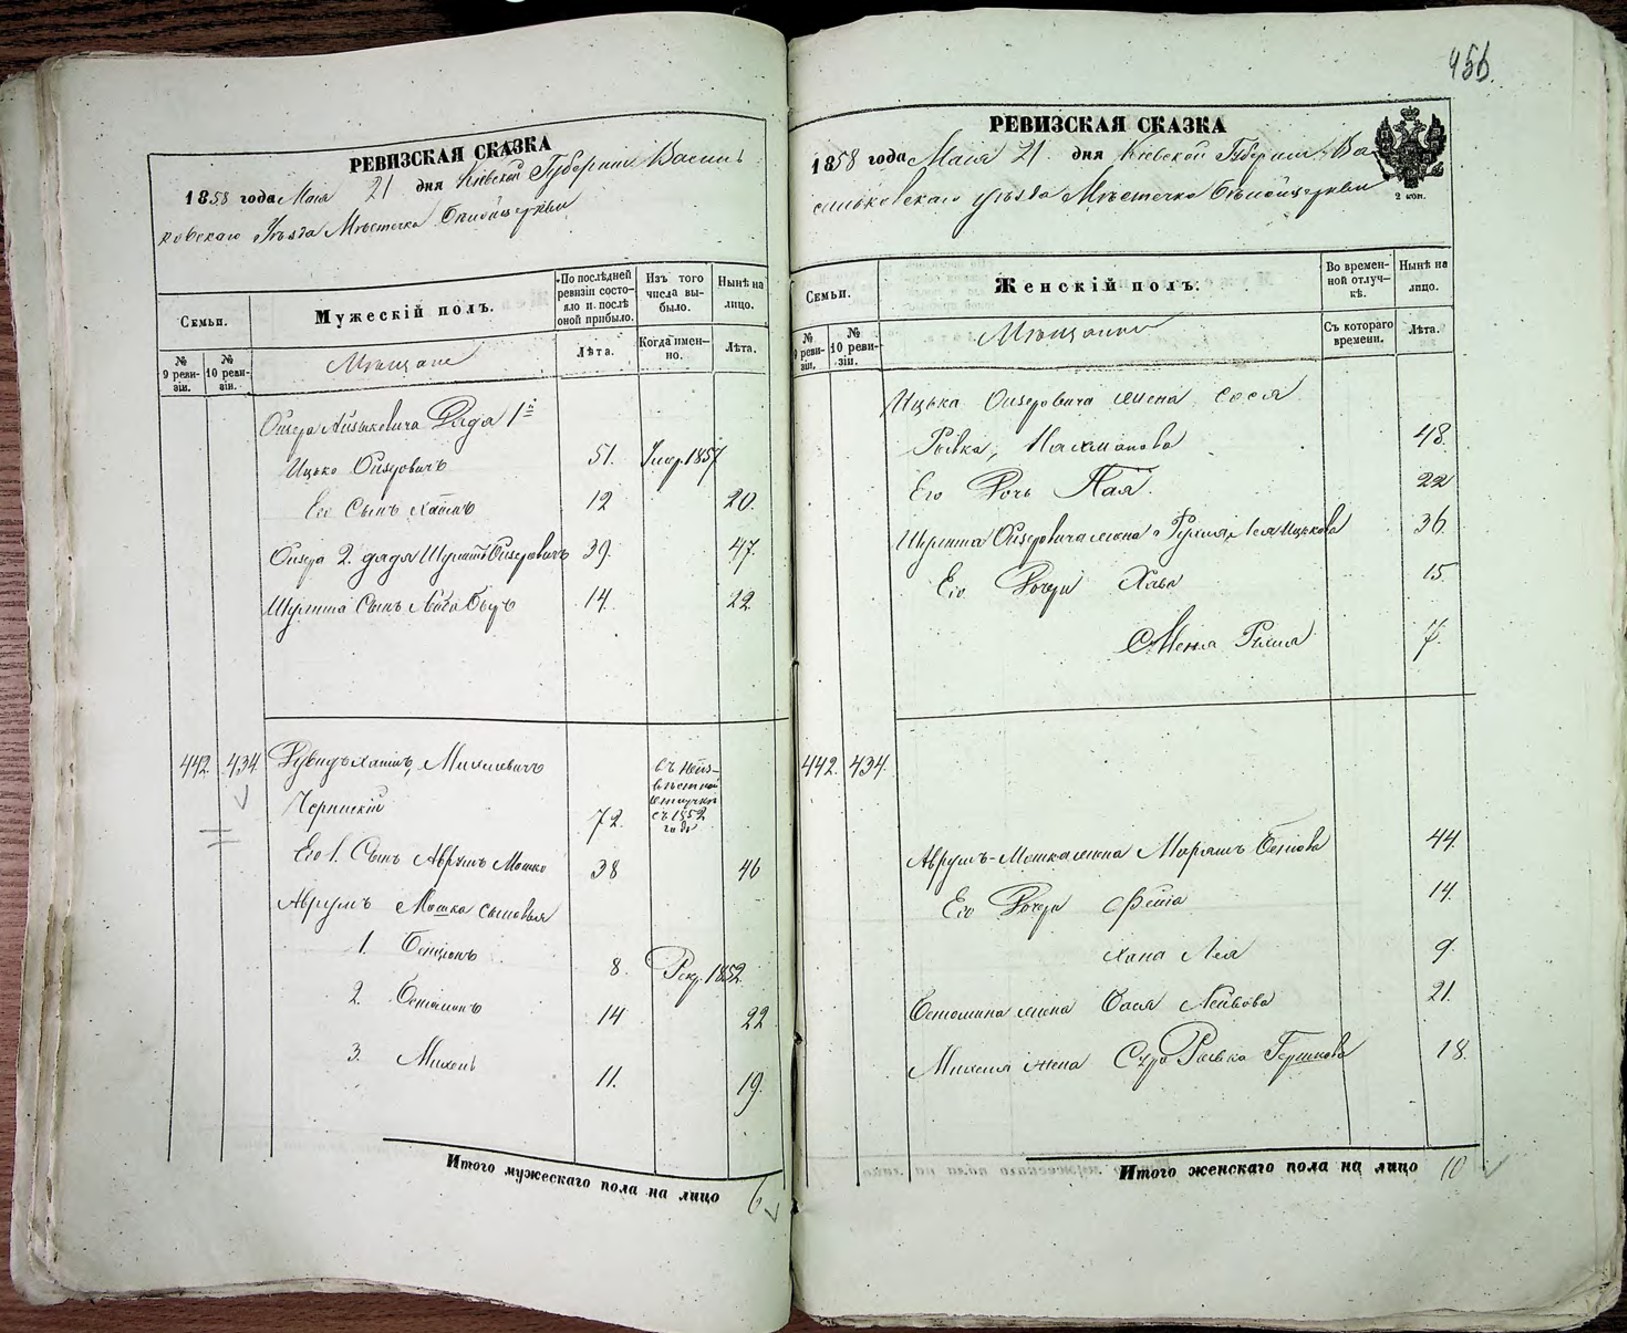 РЕВИЗСКАЯ СКАЗКА
1858 года Мая 21 дня Кіевской Губерніи Василь
ковскаго Уѣзда Мѣстечка Бѣлойцеркви
Семьи.
Мужескій полъ.
По послѣдней ревизіи состояло и послѣ оной прибыло.
Изъ того числа выбыло.
Нынѣ на лицо.
№ 9 ревизіи.
№ 10 ревизіи.
Мѣщане
Лѣта.
Когда именно.
Лѣта.
Дядя 1й
Ицько Ойзеровичъ 51. Умер. 1857
Его Сынъ Хаимъ 12 20.
Ойзера 2. дядя Ойзеровичъ 39. 47.
Сынъ 14. 22
442. 434 Хаимъ, Михилевичъ
съ неиз-
вѣстной
отлучкѣ
съ 1852
года
72.
Его 1. Сынъ Аврумъ Мошко 38 46
Аврумъ Мошка сыновья
1. Бенціонъ 8. Рекр. 1852
2. 14 22
3. Михель 11. 19.
Итого мужескаго пола на лицо 6
456.
РЕВИЗСКАЯ СКАЗКА
1858 года Мая 21 дня Кіевской Губерніи Ва
сильковскаго уѣзда Мѣстечка Бѣлойцеркви
2 коп.
Семьи.
Женскій полъ.
Во временной отлучкѣ.
Нынѣ на лицо.
№ 9 ревизіи.
№ 10 ревизіи.
Мѣщанки
Съ котораго времени.
Лѣта.
Ицька Ойзеровича жена Сося
Ривка, Нахманова 48.
Его Дочь Пая. 22
Ойзеровича жена Ицькова 36.
Его Дочери Хава 15.
7.
442. 434.
Аврумъ-Мошка жена Марьямъ 44.
Его Дочери 14.
Хана Лея 9.
жена Бася Лейбова 21.
Михеля жена Сура Ривка Гершкова 18.
Итого женскаго пола на лицо 10